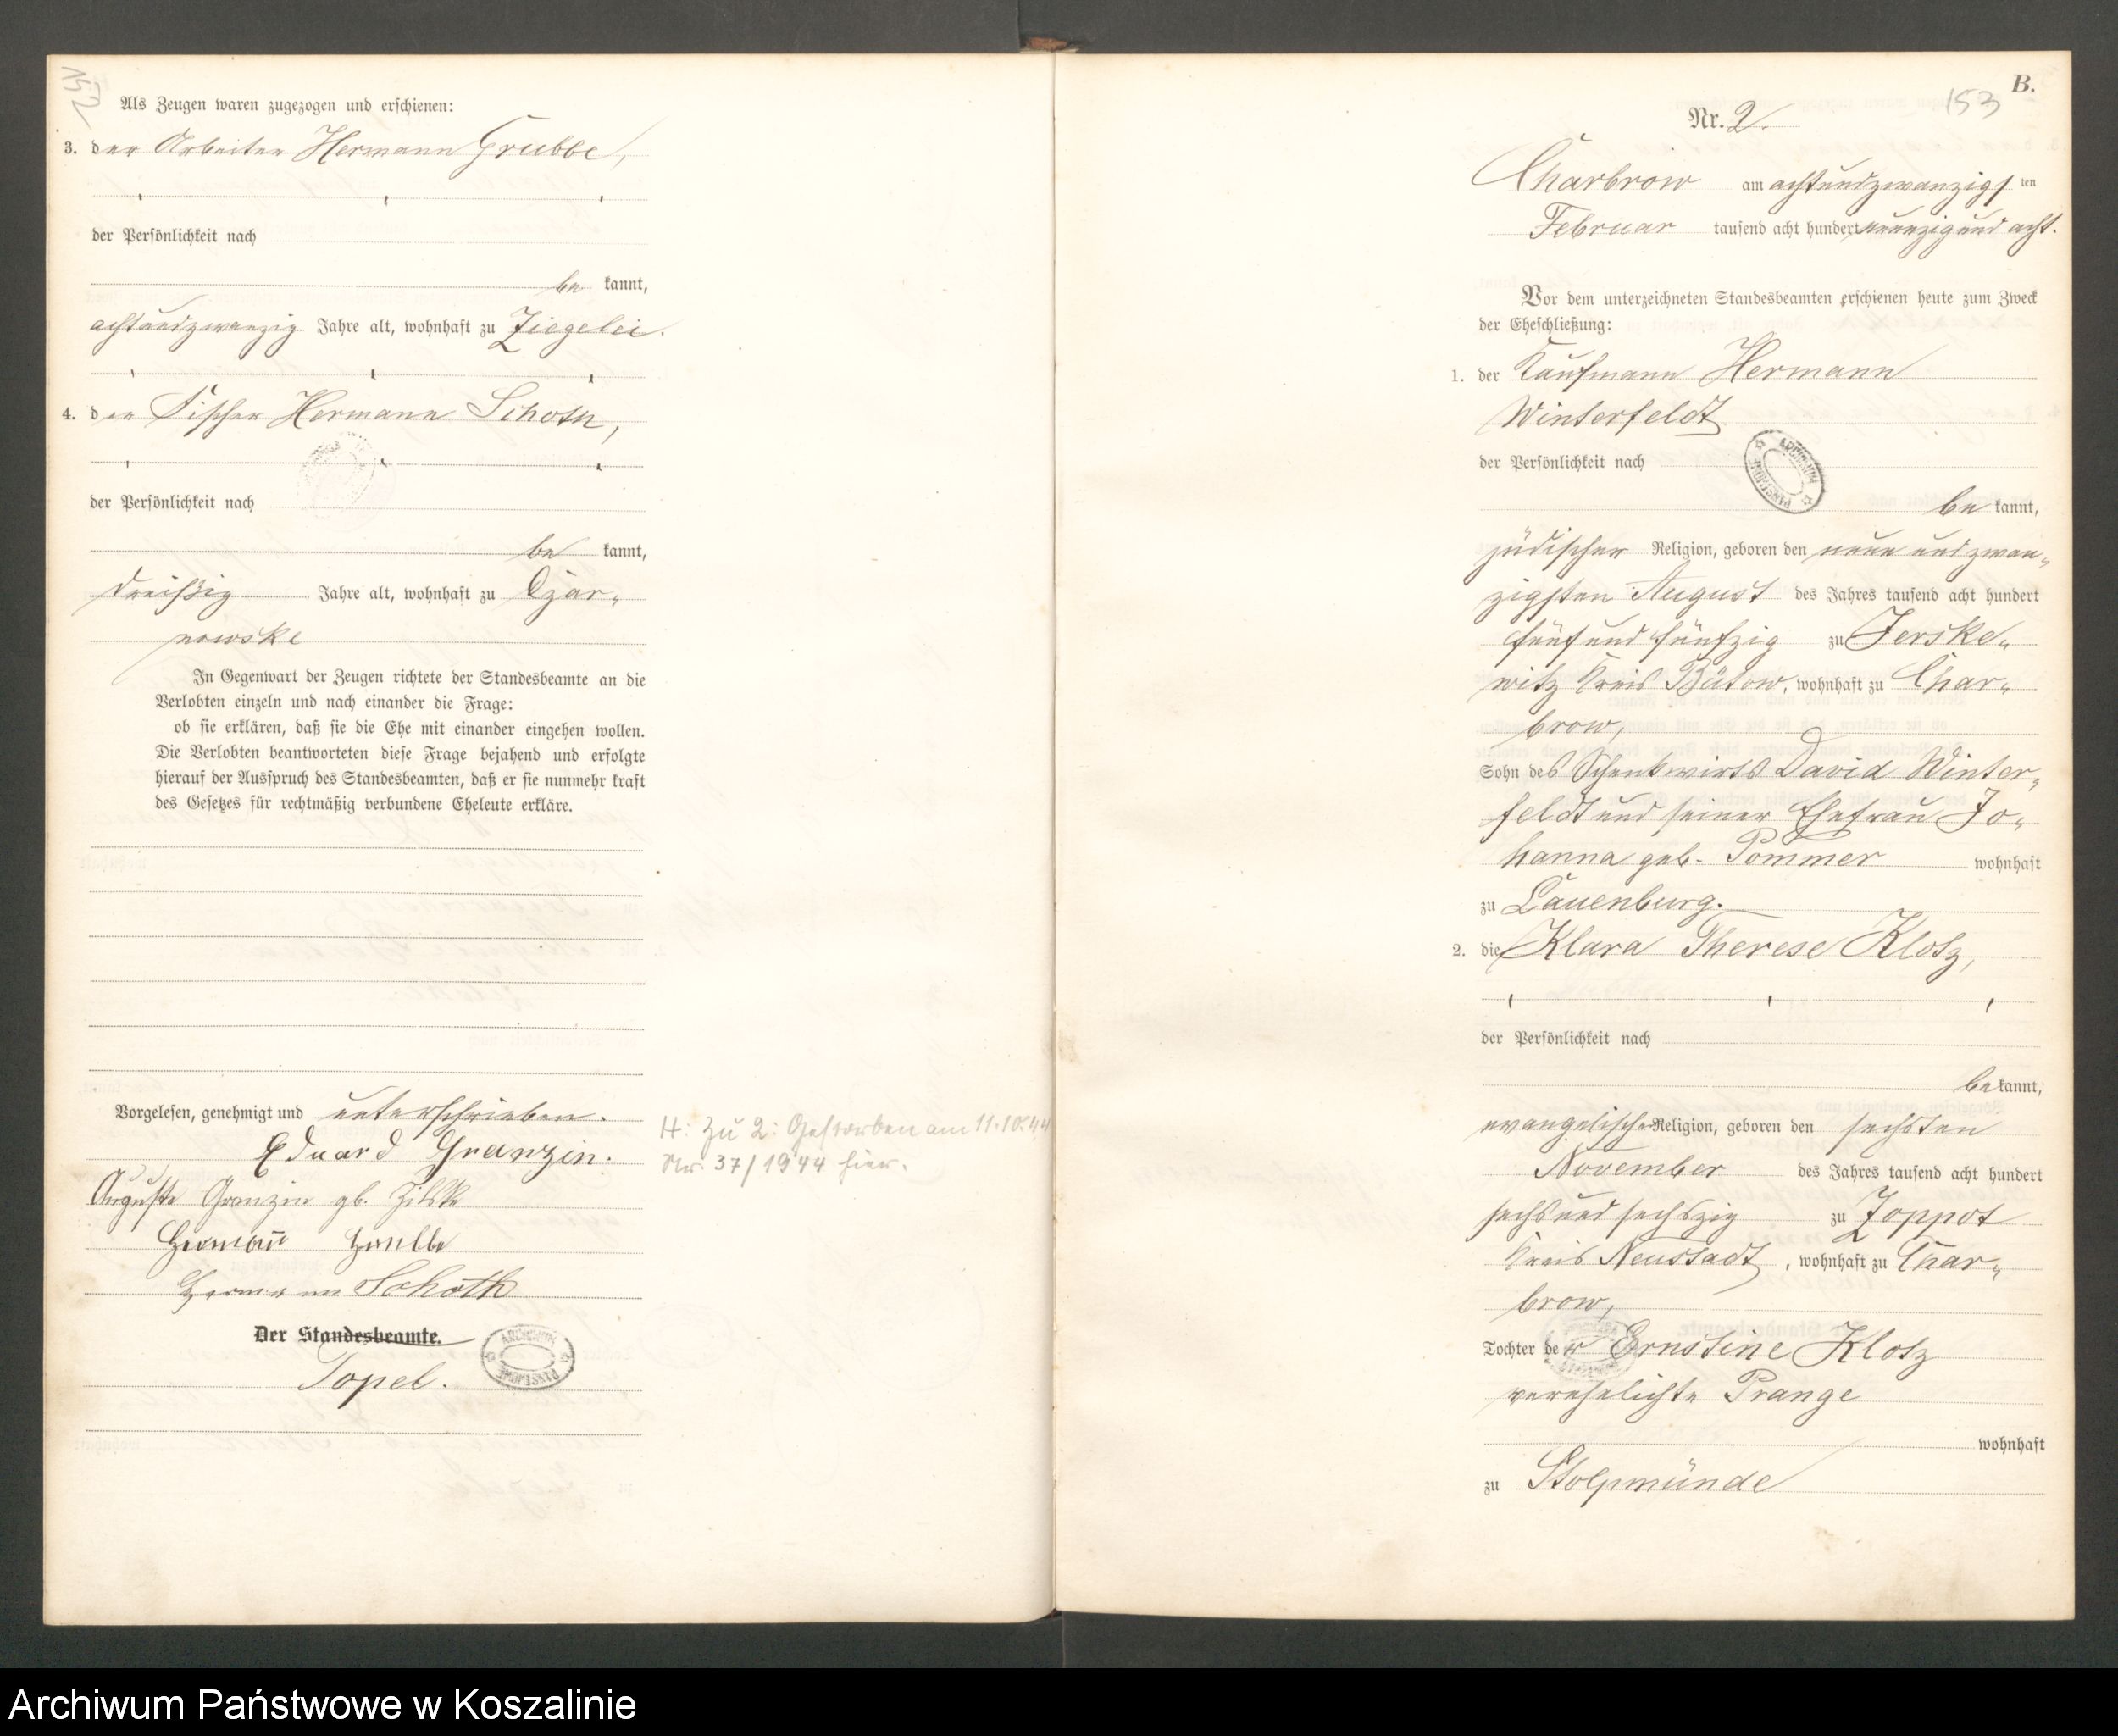 152
Als Zeugen waren zugezogen und erschienen:
3. der Arbeiter Hermann Grubbe,
der Persönlichkeit nach
be kannt,
achtundzwanzig Jahre alt, wohnhaft zu Ziegelei.
4. der Fischer Hermann Schoth,
der Persönlichkeit nach
be kannt,
dreißig Jahre alt, wohnhaft zu Czar-
nowske
In Gegenwart der Zeugen richtete der Standesbeamte an die
Verlobten einzeln und nach einander die Frage:
ob sie erklären, daß sie die Ehe mit einander eingehen wollen.
Die Verlobten beantworteten diese Frage bejahend und erfolgte
hierauf der Ausspruch des Standesbeamten, daß er sie nunmehr kraft
des Gesetzes für rechtmäßig verbundene Eheleute erkläre.
Vorgelesen, genehmigt und unterschrieben.
Eduard Granzin.
Auguste Granzin gb. Zilske
Hermann Grubbe
Hermann Schoth
Der Standesbeamte.
Topel.
ARCHIWUM PAŃSTWOWE
H: Zu 2: Gestorben am 11.10.44
Nr. 37/1944 hier.
B.
153
Nr. 2.
Charbrow am achtundzwanzigs ten
Februar tausend acht hundert neunzig und acht.
Vor dem unterzeichneten Standesbeamten erschienen heute zum Zweck
der Eheschließung:
1. der Kaufmann Hermann
Winterfeldt
der Persönlichkeit nach
ARCHIWUM PAŃSTWOWE
be kannt,
jüdischer Religion, geboren den neun und zwan-
zigsten August des Jahres tausend acht hundert
fünf und fünfzig zu Jerske-
witz Kreis Bütow, wohnhaft zu Char-
brow,
Sohn des Schankwirts David Winter-
feldt und seiner Ehefrau Jo-
hanna geb. Pommer wohnhaft
zu Lauenburg.
2. die Klara Therese Klotz,
der Persönlichkeit nach
be kannt,
evangelischer Religion, geboren den sechsten
November des Jahres tausend acht hundert
sechs und sechszig zu Zoppot
Kreis Neustadt, wohnhaft zu Char-
brow,
Tochter der Ernstine Klotz
verehelichte Prange
wohnhaft
zu Stolpmünde
Archiwum Państwowe w Koszalinie